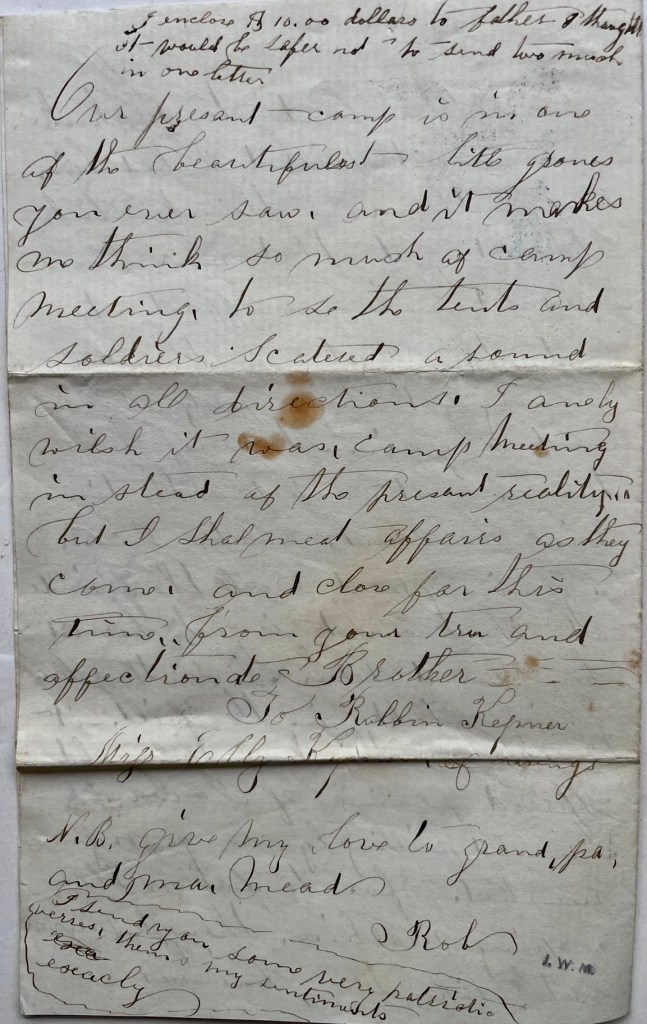 I enclose $ 10.00 dollars to father I thought
it would be safer not to send two much
in one letter
Our present camp is in one
of the beautifulest litle groves
you ever saw. and it makes
me think so much of camp
meeting, to se the tents and
soldiers scatered a round
in all directions. I only
wish it was, camp meeting
in stead of the present reality,
but I shal meat affairs as they
come. and close for this
time,. from your tru and
affectionate Brother
To Robbin Kepner
Miss
N.B. give my love to grand, pa,
and ma, Mead
Rob
I send you some very patriotic
verses, them s my sentiments
exacly
I. W. M.